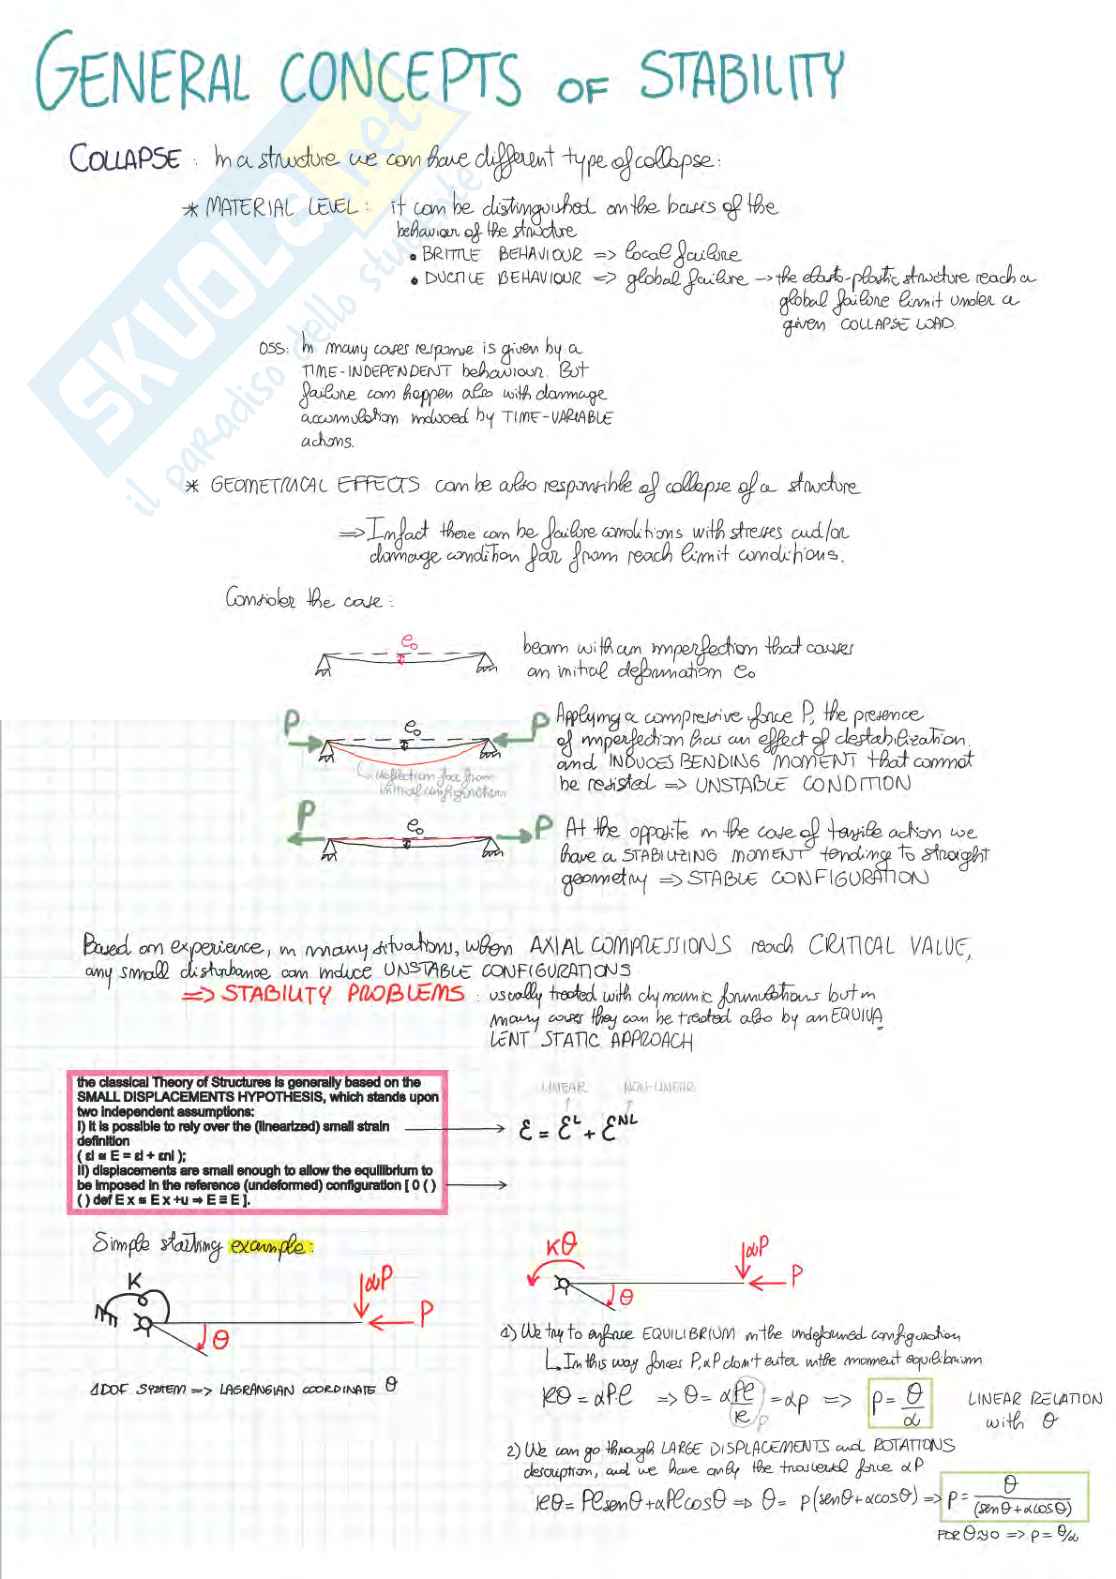 GENERAL CONCEPTS OF STABILITY
COLLAPSE: In a structure we can have different type of collapse:
* MATERIAL LEVEL: it can be distinguished on the basis of the
behaviour of the structure
• BRITTLE BEHAVIOUR => local failure
• DUCTILE BEHAVIOUR => global failure → the elasto-plastic structure reach a
global failure limit under a
given COLLAPSE LOAD.
OSS: In many cases response is given by a
TIME-INDEPENDENT behaviour. But
failure can happen also with dammage
accumulation induced by TIME-VARIABLE
actions.
* GEOMETRICAL EFFECTS can be also responsible of collapse of a structure
=> Infact there can be failure conditions with stresses and/or
damage condition far from reach limit conditions.
Consider the case:
e₀
beam with an imperfection that causes
an initial deformation e₀
P e₀ P
Applying a compressive force P, the presence
of imperfection has an effect of destabilization
and INDUCES BENDING MOMENT that cannot
be resisted => UNSTABLE CONDITION
deflection far from
initial configuration
P e₀ P
At the opposite in the case of tensile action we
have a STABILIZING MOMENT tending to straight
geometry => STABLE CONFIGURATION
Based on experience, in many situations, when AXIAL COMPRESSIONS reach CRITICAL VALUE,
any small disturbance can induce UNSTABLE CONFIGURATIONS
=> STABILITY PROBLEMS: usually treated with dynamic formulations but in
many cases they can be treated also by an EQUIVA
LENT STATIC APPROACH
the classical Theory of Structures is generally based on the
SMALL DISPLACEMENTS HYPOTHESIS, which stands upon
two independent assumptions:
I) it is possible to rely over the (linearized) small strain
definition
( εl ≅ E = εl + εnl );
II) displacements are small enough to allow the equilibrium to
be imposed in the reference (undeformed) configuration [ 0 ( )
( ) def E x ≅ E x +u ⇒ E ≡ E ].
LINEAR NON-LINEAR
ε = ε^L + ε^NL
Simple starting example:
K αP P θ
1DOF SYSTEM => LAGRANGIAN COORDINATE θ
Kθ αP P θ
1) We try to enforce EQUILIBRIUM in the undeformed configuration
↳ In this way forces P, αP don't enter in the moment equilibrium
kθ = αP·ℓ => θ = α Pℓ/k = αp => p = θ/α
p
LINEAR RELATION
with θ
2) We can go through LARGE DISPLACEMENTS and ROTATIONS
description, and we have only the trasversal force αP
kθ = Pℓ senθ + αPℓ cosθ => θ = p(senθ + αcosθ) => p = θ/(senθ + αcosθ)
FOR θ≈0 => p = θ/α
SKUOLA.net
il paradiso dello studente